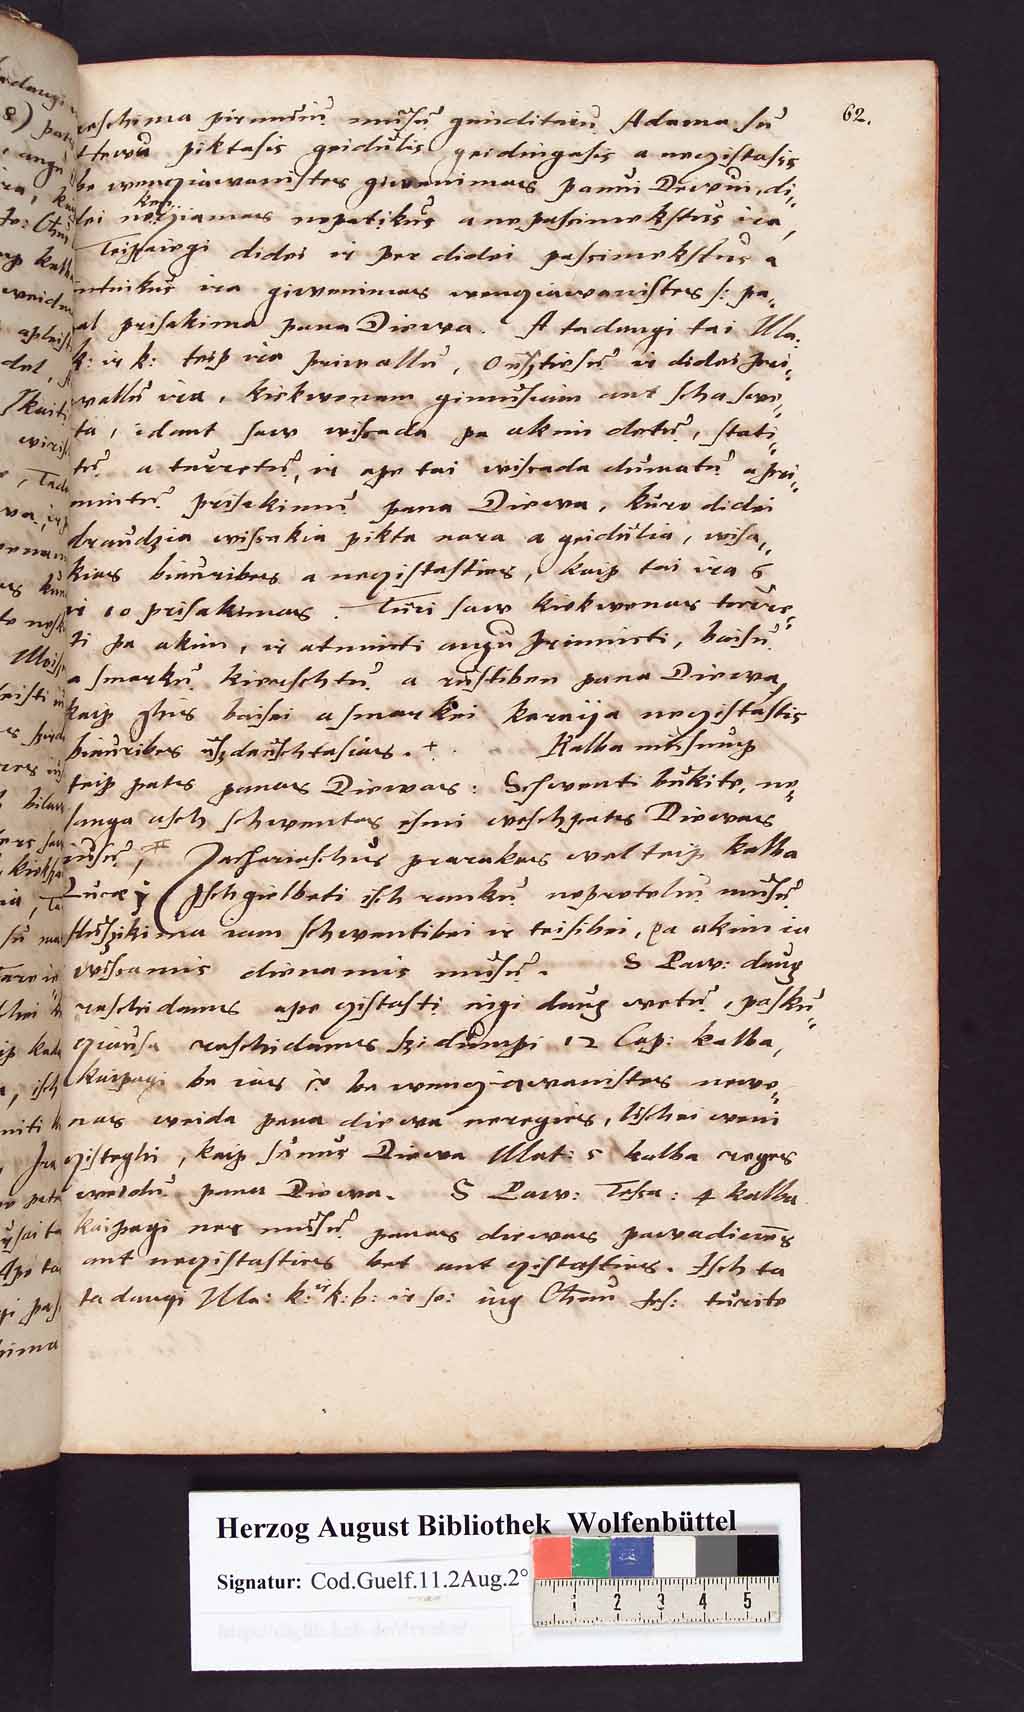 62.
raschima pirmuiũ musũ gimditaiũ Adama su
Hewa piktasis geidulis geidingasis a neczistasis
be wencziawanistes giwenimas panui Diewui, di⸗
lei nekencziamas nepatikus a nepassimekstus ira,
Teipaiegi didei ir per didei passimekstus a
intikus ira giwenimas wencziawanistes s: pa⸗
al prisakima pana Diewa. A tadangi tai Ma:
k: ir k: teip ira priwallu, ir didei pri⸗
wallu ira, kiekwenam gimusiam ant scha swe⸗
ta, idant saw wissada pa akim detũ, stati⸗
tũ a turretũ, ir ape tai wissada dumatũ a pri⸗
mintũ prisakimũ pana Diewa, kure didei
draudzia wissakia pikta nara a geidulia, wisa⸗
kias biauribes a neczistasties, kaip tai ira 6
ir 10 prisakimas. Turi saw kiekwenas turre⸗
ti pa akim, ir atminti angu priminti, baisũ
a smarkũ kierschtũ a rustiben pana Diewa,
kaip ghis baisei a smarkei karaija neczistastis
biauribes uszdauschtasias. + Kalba musump
teip pates panas Diewas: Schwenti bukite, ne⸗
sanga asch schwentas esmi weschpates Diewas
iusũ, Zacheriaschus prarakas wel teip kalba
Lucae j Jsch gielbeti isch rankũ neprietelũ musũ
sluszikima iam schwentibei ir teisibei, pa akim ia
wissamis dienamis musũ. S Paw: daug
raschidams ape czistasti ingi daug wetũ, pasku⸗
cziausa raschidams Szidumpi 12 Cap: kalba,
kaipagi be ias ir be wencziawanistes newe⸗
nas weida pana diewa neregies, tischei weni
czisteghi, kaip sunus Diewa Mat: 5 kalba reges
weidũ pana Diewa. S Paw: Tessa: 4 kalba
kaipagi nes musũ panas diewas pawadienes
ant neczistasties bet ant czistasties. Jsch ta
tadangi Ma: k: ir k: b: ir se: ing Chrũ Jes: turite
Herzog August Bibliothek Wolfenbüttel
Signatur: Cod.Guelf.11.2Aug.2°
1 2 3 4 5